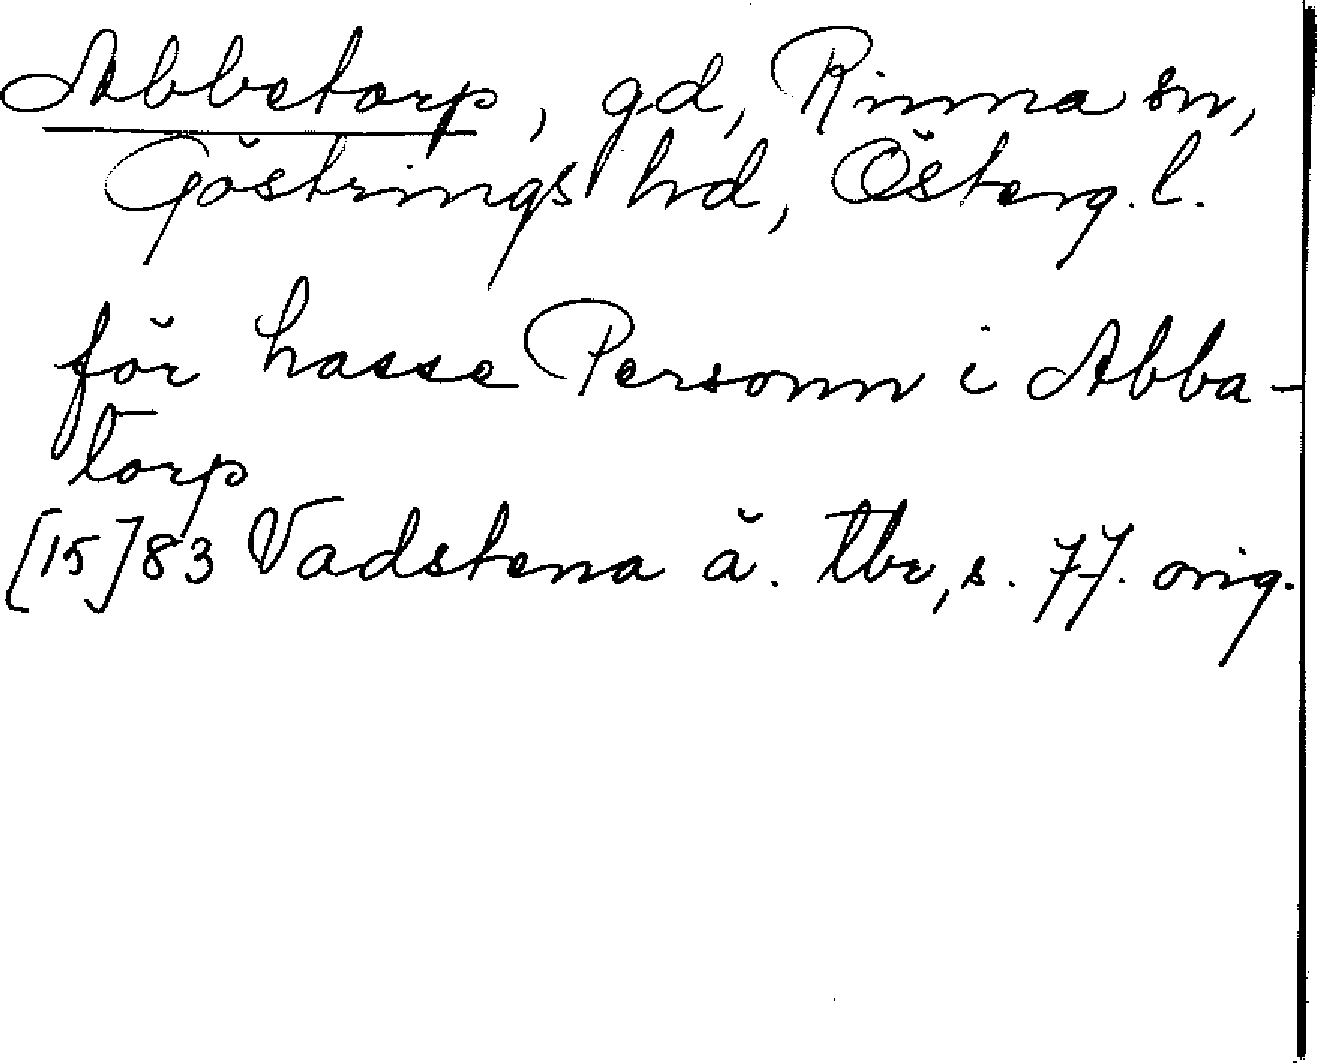 Abbetorp, gd, Rinna sn,
Göstrings hd, Österg. l.
för hasse Personn i Abba-
torp
[15]83 Vadstena ä. tbr, s. 77. orig.